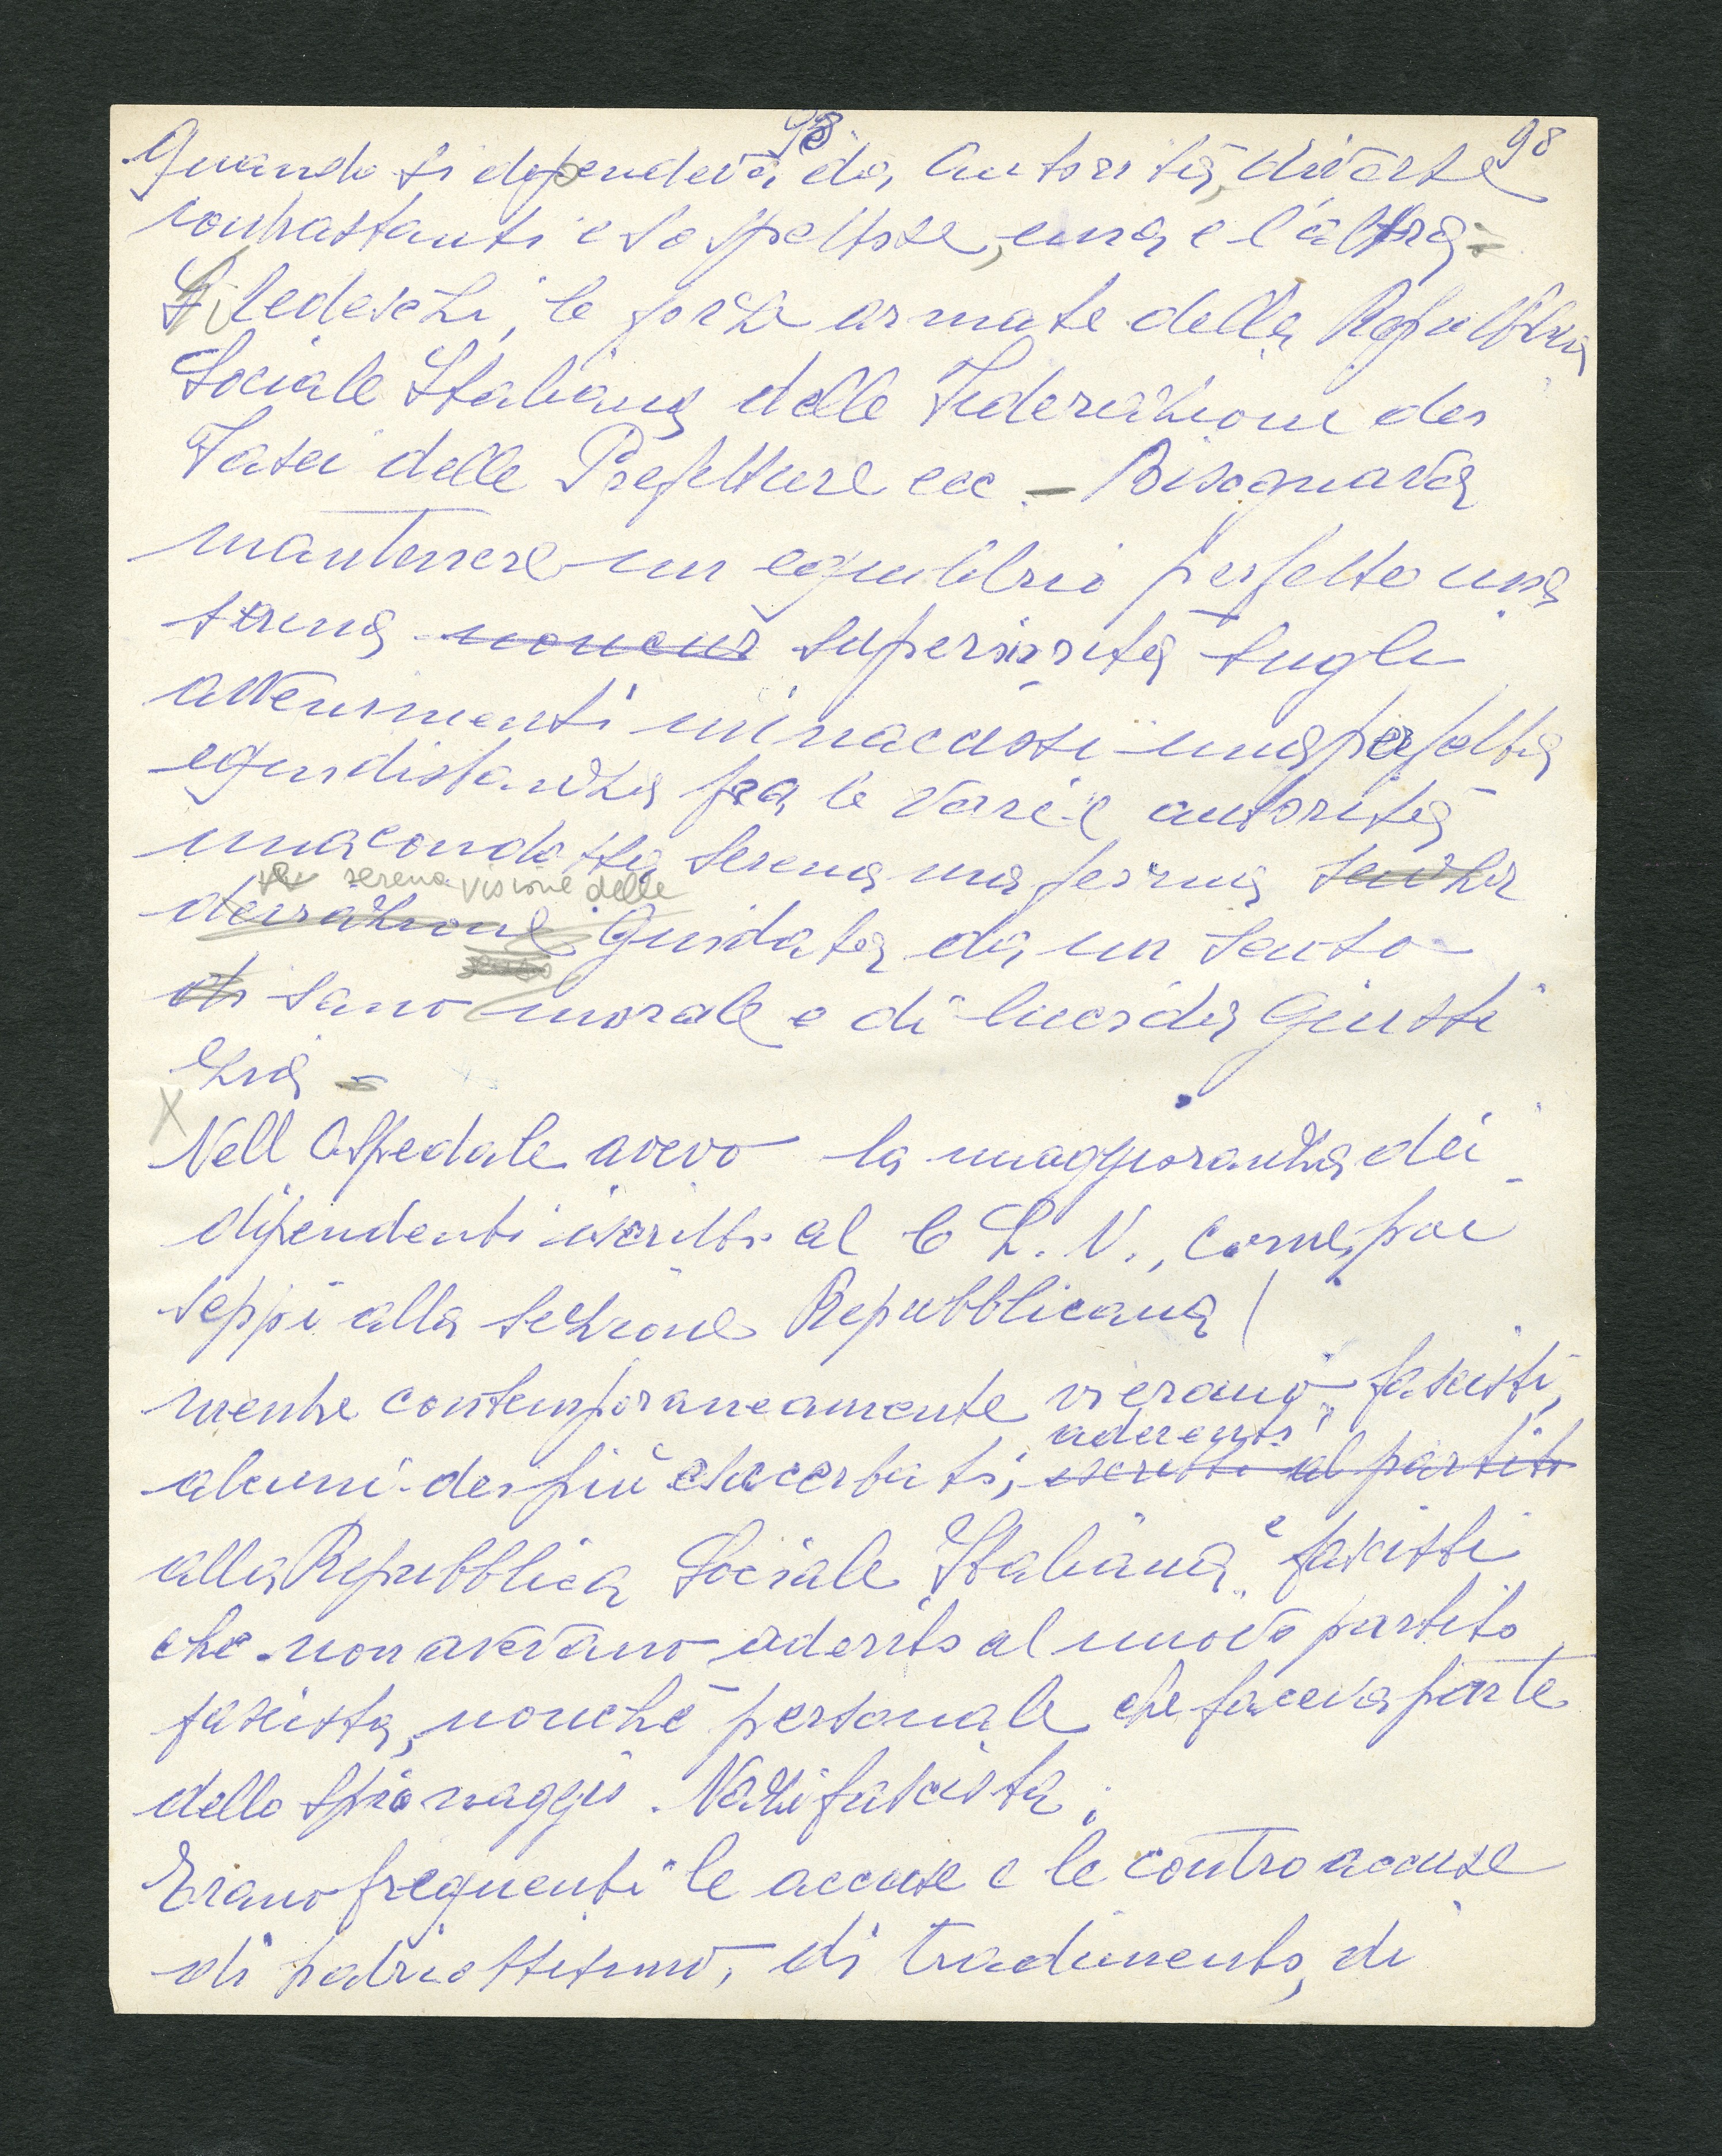 98 98
Quando si dipendeva da autorità, diverse
contrastanti e sospettose, una e l'altra =
I tedeschi, le forze armate della Repubblica
Sociale Italiana delle Federazione dei
Fasci delle Prefetture ecc - Bisognava
mantenere un equilibrio perfetto una
serena superiorità sugli
avvenimenti minacciosi una perfetta
equidistanza fra le varie autorità
una condotta serena ma ferma senza
serena visione delle
deviazione Guidata da un senso
di sano morale e di lucida Giusti
zia =
X
Nell Ospedale avevo la maggioranza dei
dipendenti iscritti al C L. N., come poi
seppi alla sezione Repubblicana (
mentre contemporaneamente vi erano fascisti,
aderenti
alcuni dei più esacerbati, iscritti al partito
alla Repubblica Sociale Italiana e fascisti
che non avevano aderito al nuovo partito
fascista, nonchè personale che faceva parte
dello spionaggio Nazifascista.
Erano frequenti le accuse e le contro accuse
di patriottismo, di tradimento, di